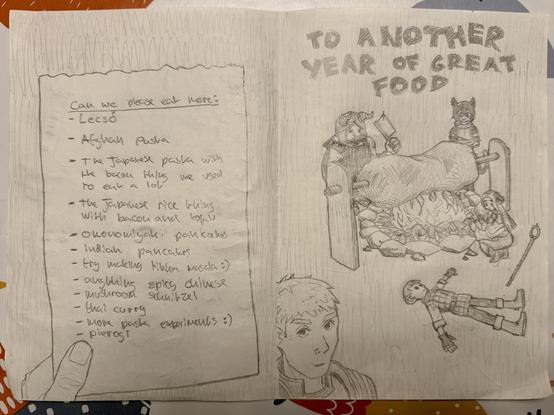 Can we please eat more:
- Lecsó
- Afghan Pasha
- The Japanese pasta with
the bacon thing we used
to eat a lot
- The Japanese rice thing
with bacon and tofu
- Okonomiyaki pancakes
- indian pancakes
- try making tikka masala :)
- anything spicy chinese
- mushroom schnitzel
- thai curry
- more pasta experiments :)
- pierogi
TO ANOTHER
YEAR OF GREAT
FOOD